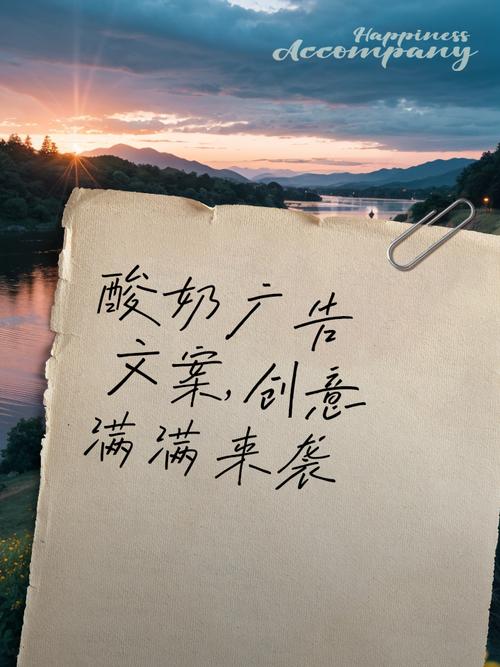 Happiness
Accompany
酸奶广告
文案,创意
满满来袭